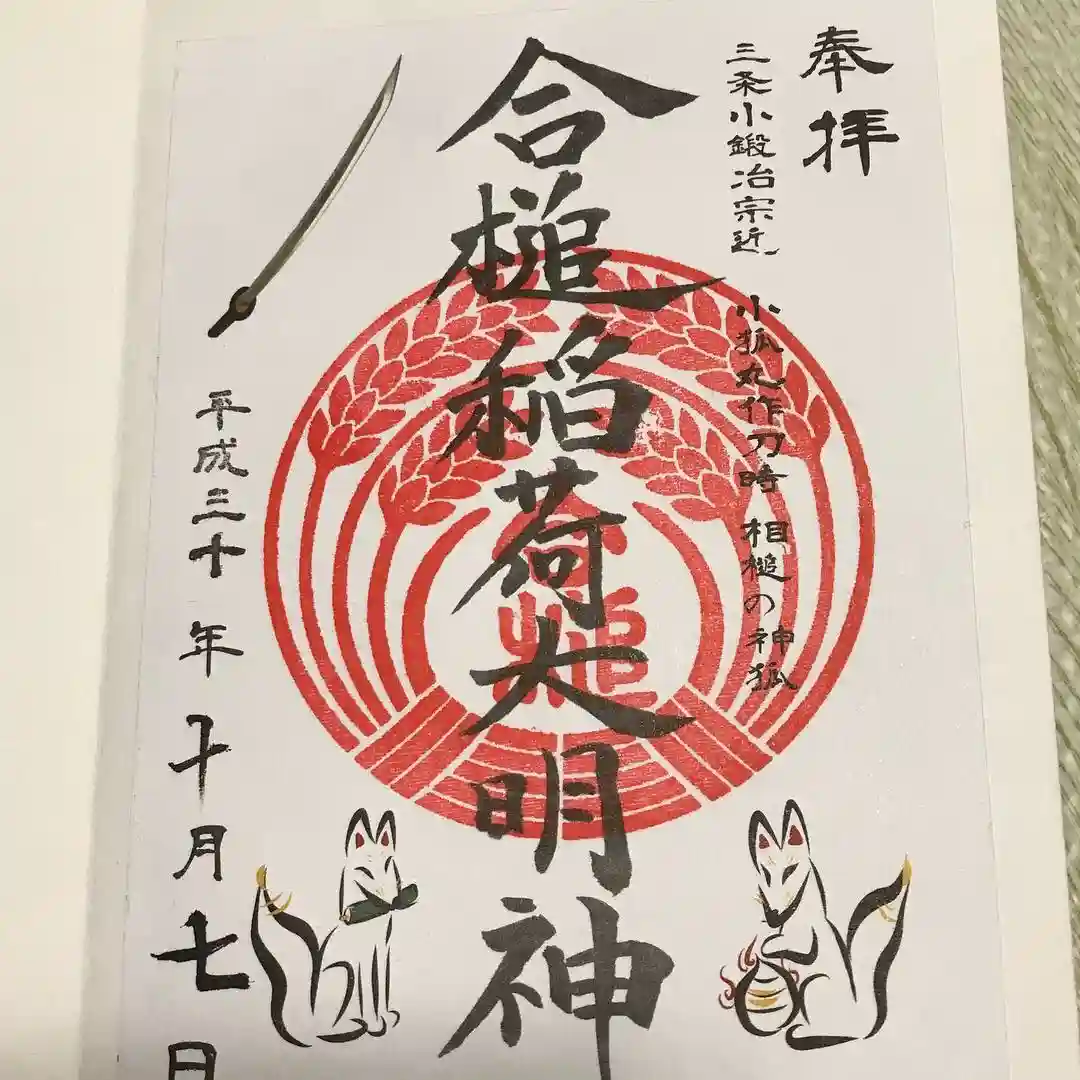 奉拝
三条小鍛冶宗近
小狐丸作刀時 相槌の神狐
合槌稲荷大明神
合槌
平成三十年十月七日